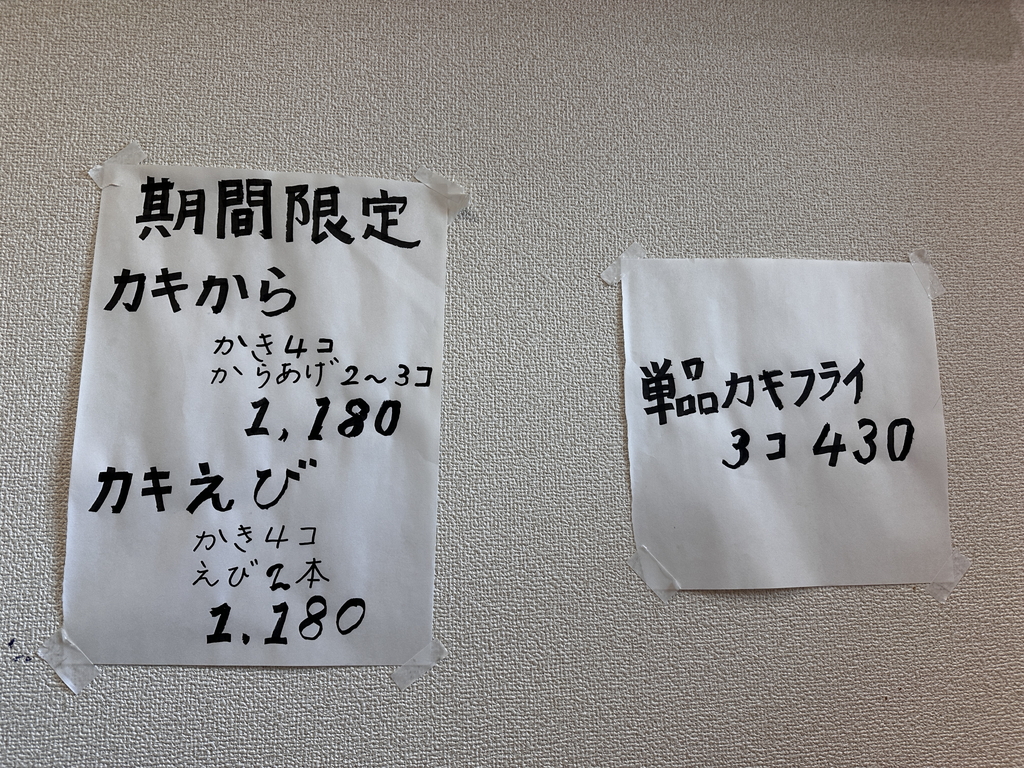 期間限定
カキから
かき4コ
からあげ2〜3コ
1,180
カキえび
かき4コ
えび2本
1.180
単品カキフライ
3コ 430